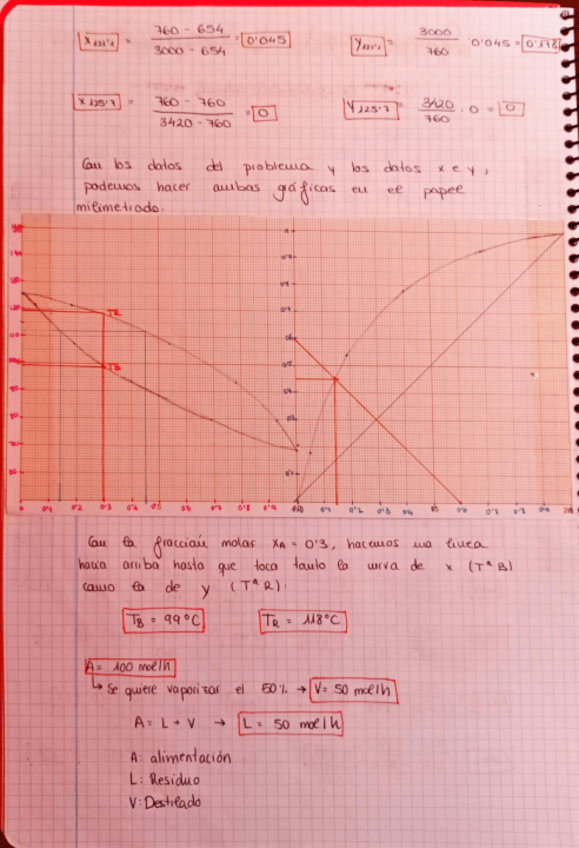 X 121'1 = 760 - 654 / 3000 - 654 = 0'045
Y 121'1 = 3000 / 760 · 0'045 = 0'178
X 125'7 = 760 - 760 / 3420 - 760 = 0
Y 125'7 = 3420 / 760 · 0 = 0
Con los datos del problema y los datos x e y,
podemos hacer ambas gráficas en el papel
milimetrado.
TR
TB
Con la fracción molar XA = 0'3, hacemos una linea
hacia arriba hasta que toca tanto la curva de x (Tª B)
como la de y (Tª R).
TB = 99ºC
TR = 118ºC
A = 100 mol/h
↳ Se quiere vaporizar el 50% → V = 50 mol/h
A = L + V → L = 50 mol/h
A: alimentación
L: Residuo
V: Destilado